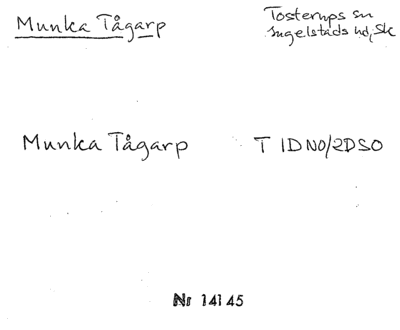 Munka Tågarp
Tosterups sn
Ingelstads hd, Sk
Munka Tågarp T 1DNO/2DSO
Nr 14145